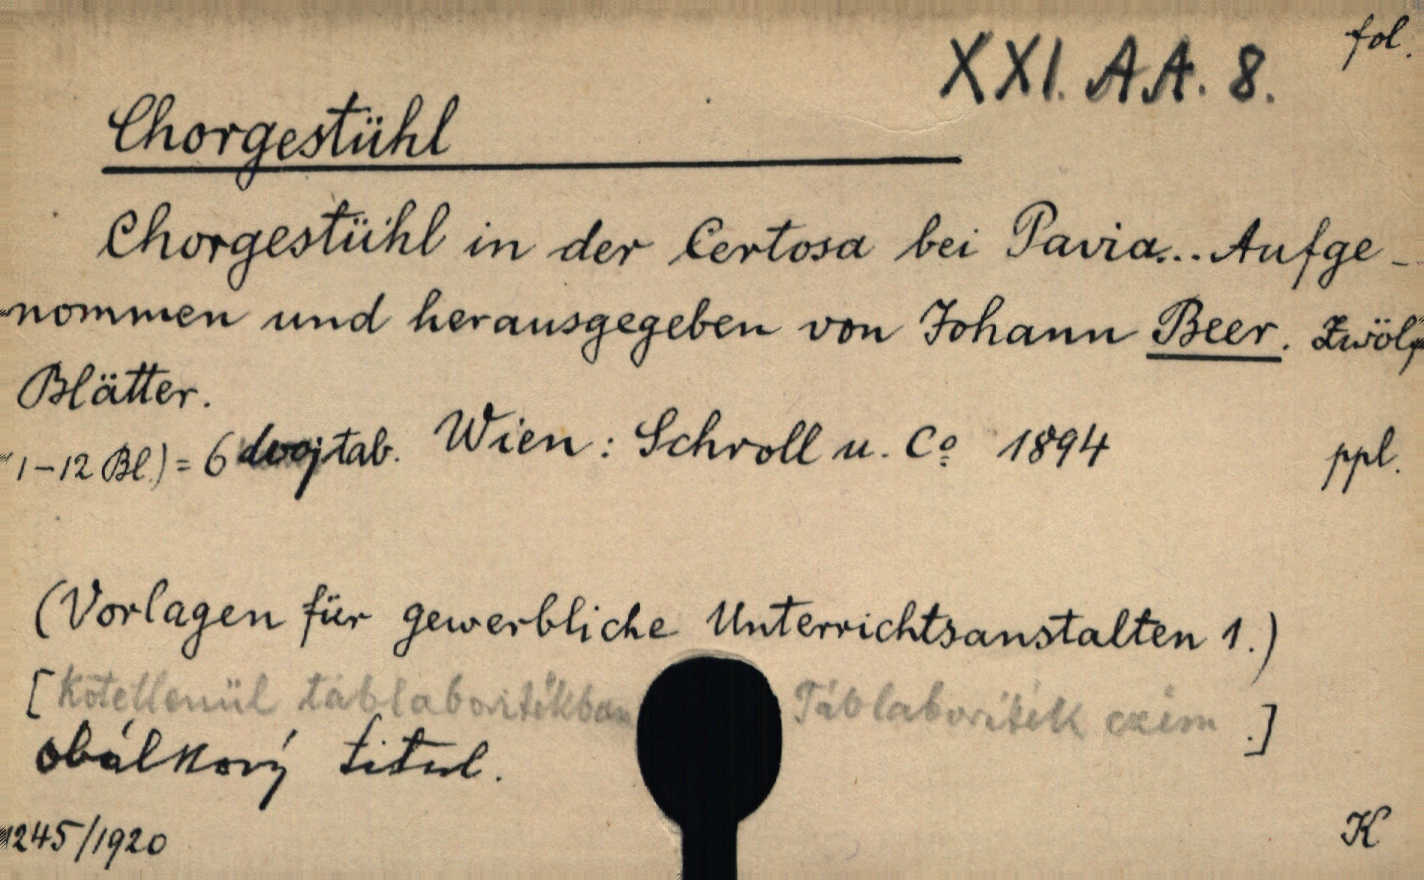 fol.
XXI. AA. 8.
Chorgestühl
Chorgestühl in der Certosa bei Pavia... Aufge-
nommen und herausgegeben von Johann Beer. Zwölf
Blätter.
1-12 Bl.) = 6 dvojtab. Wien: Schroll u. Co 1894 ppl.
(Vorlagen für gewerbliche Unterrichtsanstalten 1.)
[Kötetlenül táblaborítékban Táblaboríték czím .]
obálkový titul.
1245/1920 K